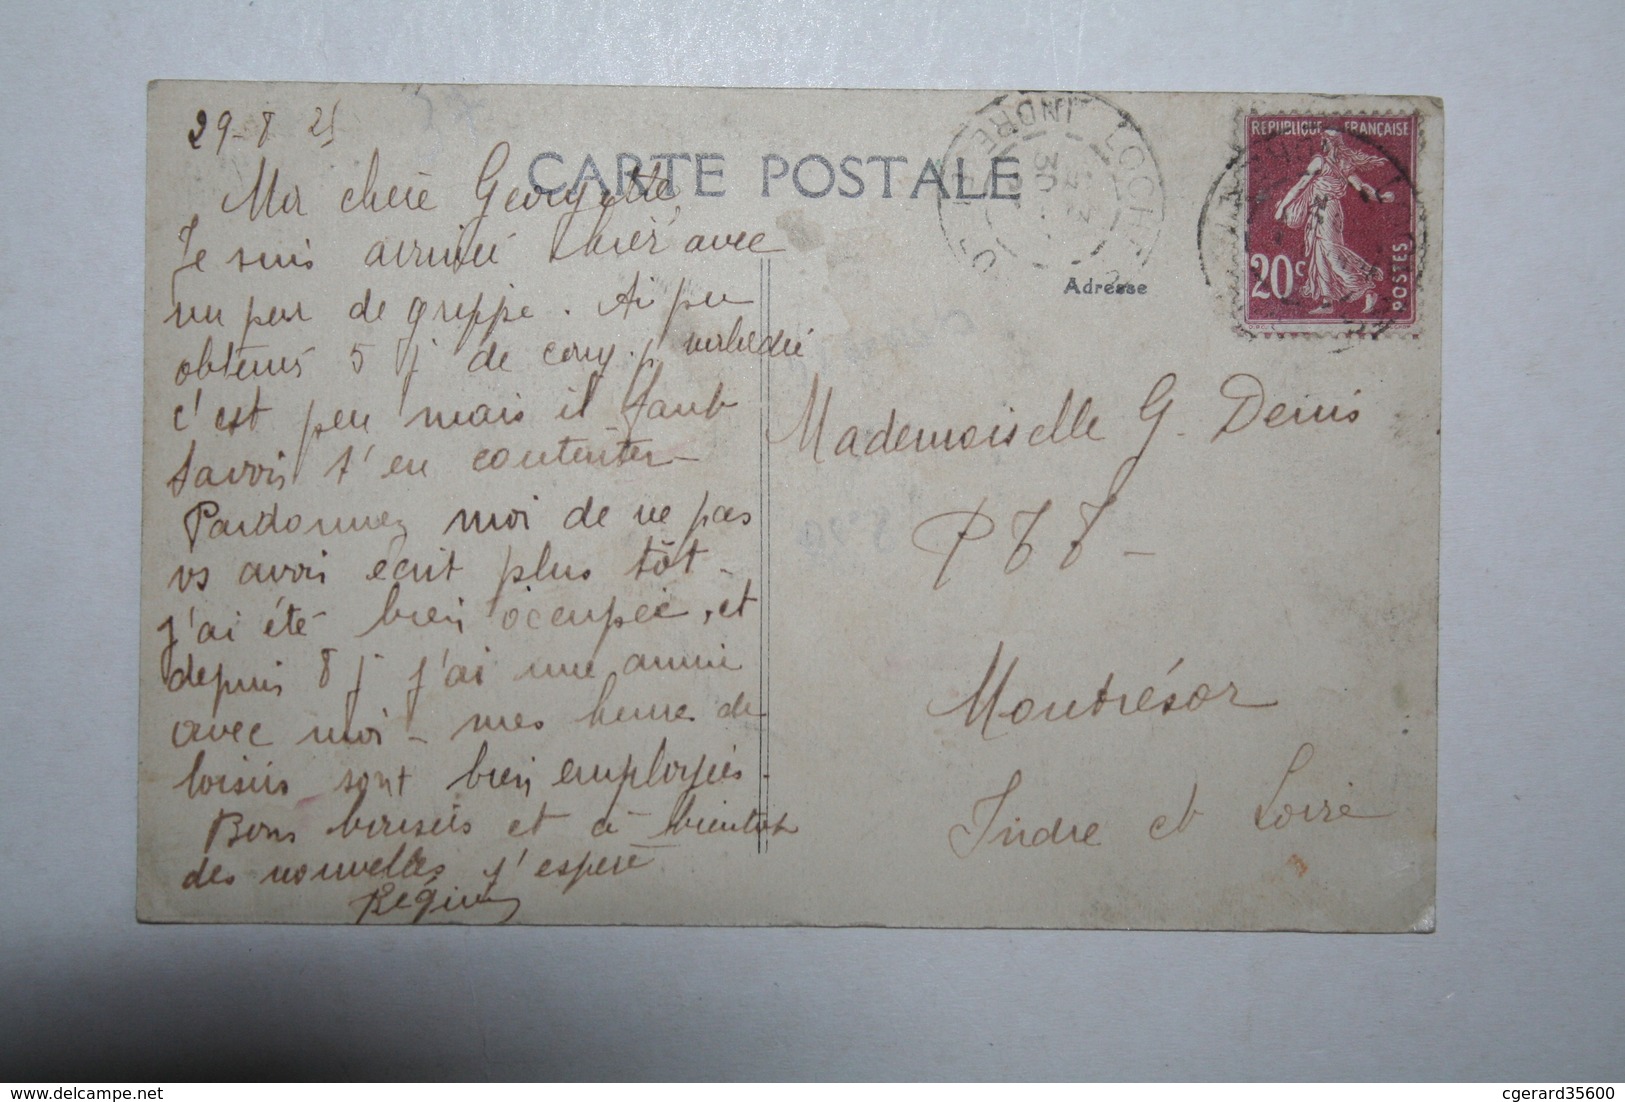 29-8 25
CARTE POSTALE
Ma chère Georgette
Je suis arrivée hier avec
un peu de grippe. Ai pu
obtenir 5 j de cong. p maladie
c'est peu mais il faut
savoir s'en contenter -
Pardonnez moi de ne pas
vs avoir écrit plus tôt -
j'ai été bien occupée, et
depuis 8 j j'ai une amie
avec moi - mes heures de
loisirs sont bien employées.
Bons baisers et à bientôt
des nouvelles j'espère
Régine
LOCHES
INDRE
30
REPUBLIQUE FRANÇAISE
20c
POSTES
Adresse
Mademoiselle G. Denis
PTT -
Montrésor
Indre et Loire
cgerard35600